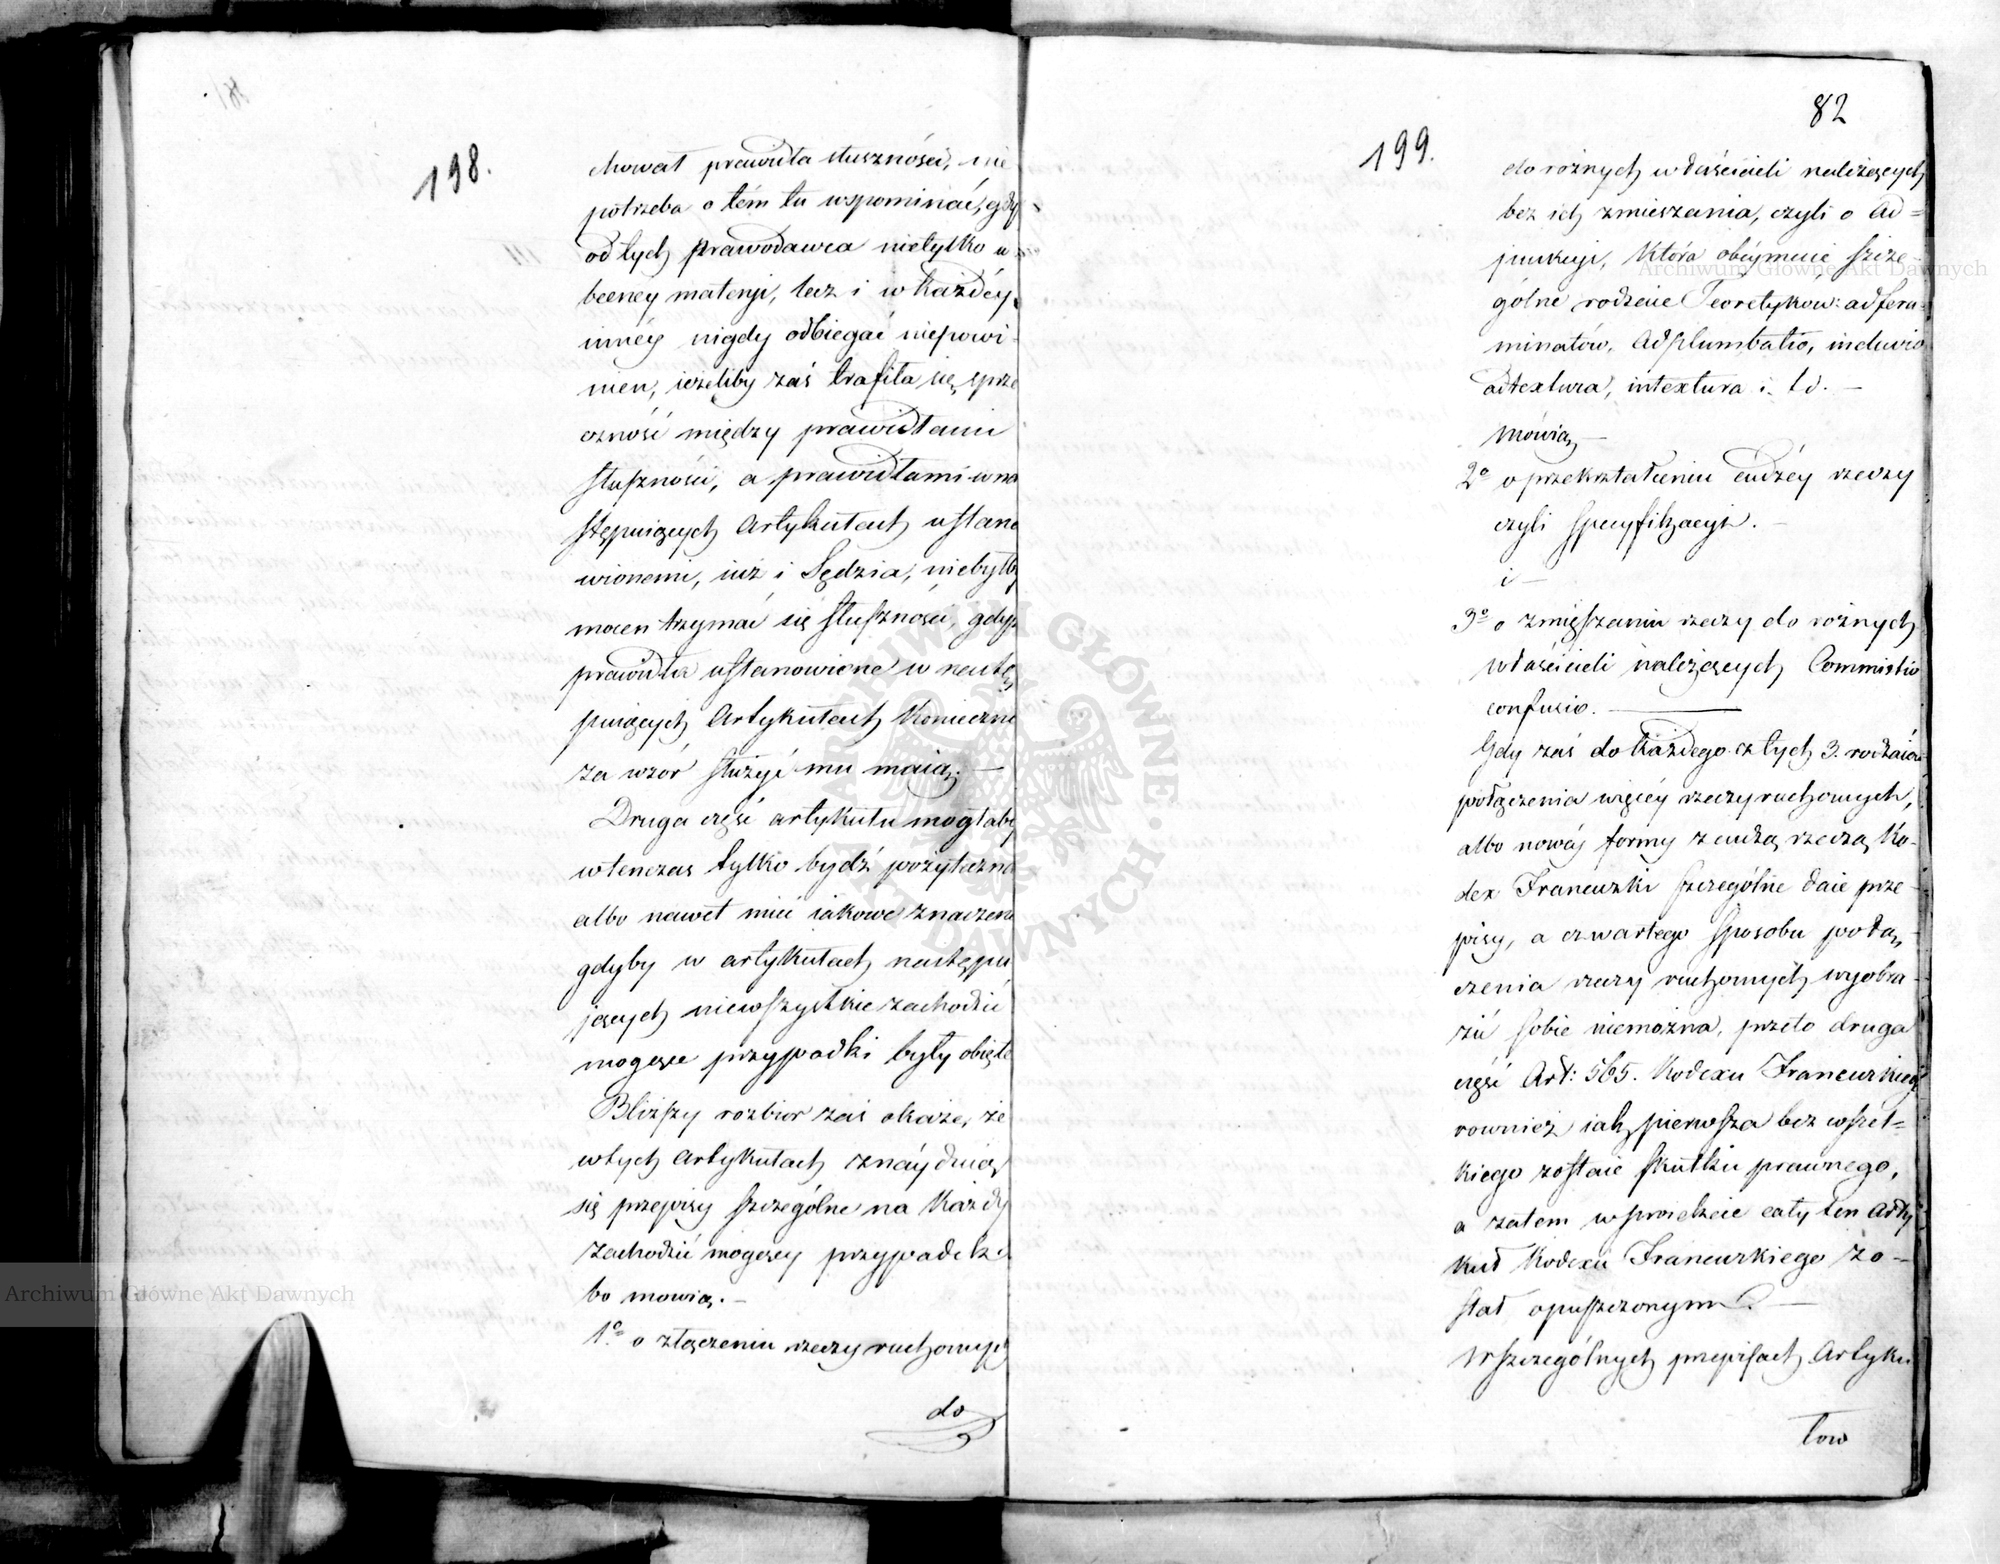 198.
chował prawidła słuszności, nie
potrzeba o tém tu wspominać, gdy
od tych prawodawca nietylko w o=
becney materyi, lecz i w każdéy
innéy nigdy odbiegać niepowi-
nien, ieżeliby zaś trafiła się sprze
czność między prawidłami
słuszności, a prawidłami w na
stępuiących Artykułach ustano
wionemi, iuż i Sędzia, niebyłby
mocen trzymać się słuszności, gdyż
prawidła ustanowione w nastę,
puiących Artykułach koniecznie
za wzór służyć mu maią. —
Druga część artykułu mogłaby
wtenczas tylko bydź pożyteczna
albo nawet mieć iakowe znaczenie
gdyby w artykułach następu
jących niewszystkie zachodzić
mogące przypadki były obięte
Bliższy rozbior zaś okaże, że
w tych Artykułach znayduią
się przepisy szczególne na każdy
zachodzić mogący przypadek
bo mowią. —
1º o złączeniu rzeczy ruchomych
do
82
199.
do rożnych właścicieli należących
bez ich zmieszania, czyli o Ad=
junkcyi, która obéymuie szcze-
gólne rodzaie Teoretyków: adferu-
minatów, Adplumbatio, inclusio
adtextura, intextura i. t d. —
Mówią —
2º o przekształceniu cudzéy rzeczy
czyli Specyfikacyi. —
i —
3º o zmięszaniu rzeczy do rożnych
właścicieli należących Commixtio
confusio. —
Gdy zaś do każdego z tych 3. rodzaiów
połączenia więcéy rzeczy ruchomych,
albo nowéj formy z cudzą rzeczą Ko-
dex Francuzki szczególne daie prze-
pisy, a czwartego sposobu połą,
czenia rzeczy ruchomych wyobra-
zić sobie niemożna, przeto druga
część Art: 565. Kodexu Francuzkiego
rownież iak pierwsza bez wszel=
kiego zostaie skutku prawnego,
a zatem w proiekcie cały ten Arty
kuł Kodexu Francuzkiego zo-
stał opuszczonym. —
W szczególnych przepisach Artyku
łow
Archiwum Główne Akt Dawnych
Archiwum Główne Akt Dawnych
ARCHIWUM GŁÓWNE AKT DAWNYCH